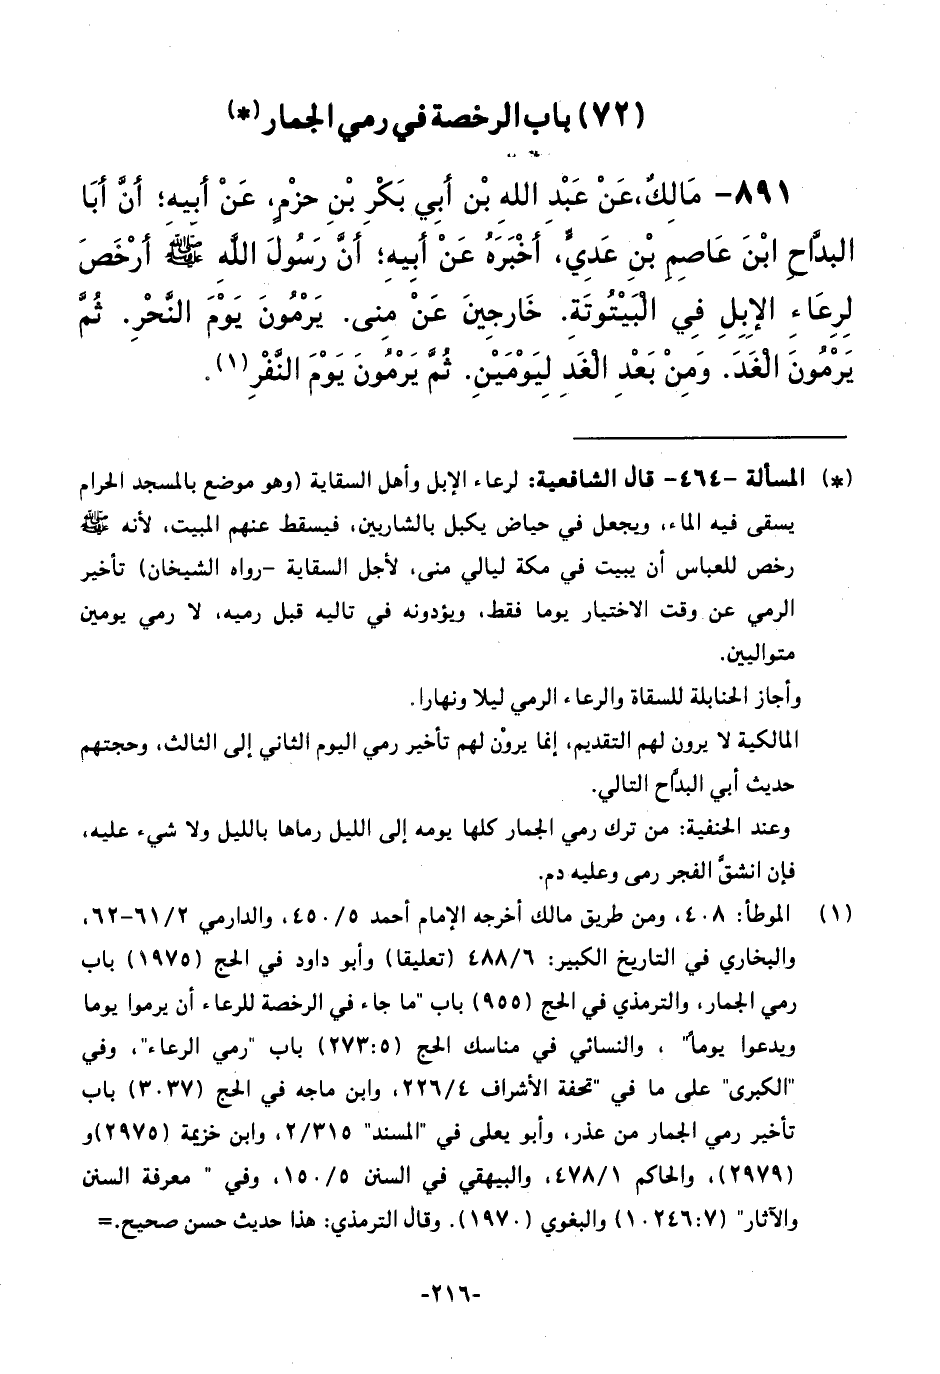 (٧٢) باب الرخصة في رمي الجمار (*)
٨٩١- مَالِكٌ، عَنْ عَبْدِ اللهِ بْنِ أَبِي بَكْرِ بْنِ حزْمٍ، عَنْ أَبِيهِ؛ أَنَّ أَبَا
البدَّاحِ ابْنَ عَاصِمِ بْنِ عَدِيٍّ، أَخْبَرَهُ عَنْ أَبِيهِ؛ أَنَّ رَسُولَ اللَّه ﷺ أَرْخَصَ
لِرِعَاءِ الإِبِلِ فِي الْبَيْتُوتَةِ. خَارِجِينَ عَنْ مِنى. يَرْمُونَ يَوْمَ النَّحْرِ. ثُمَّ
يَرْمُونَ الْغَدَ. وَمِنْ بَعْدِ الْغَدِ لِيَوْمَيْنِ. ثُمَّ يَرْمُونَ يَوْمَ النَّفْرِ (١).
(*) المسألة -٤٦٤- قال الشافعية: لرعاء الإبل وأهل السقاية (وهو موضع بالمسجد الحرام
يسقى فيه الماء، ويجعل في حياض يكبل بالشاربين، فيسقط عنهم المبيت، لأنه ﷺ
رخص للعباس أن يبيت في مكة ليالي منى، لأجل السقاية -رواه الشيخان) تأخير
الرمي عن وقت الاختيار يوما فقط، ويؤدونه في تاليه قبل رميه، لا رمي يومين
متواليين.
وأجاز الحنابلة للسقاة والرعاء الرمي ليلا ونهارا.
المالكية لا يرون لهم التقديم، إنما يروْن لهم تأخير رمي اليوم الثاني إلى الثالث، وحجتهم
حديث أبي البدَّاح التالي.
وعند الحنفية: من ترك رمي الجمار كلها يومه إلى الليل رماها بالليل ولا شيء عليه،
فإن انشقَّ الفجر رمى وعليه دم.
(١) الموطأ: ٤٠٨، ومن طريق مالك أخرجه الإمام أحمد ٤٥٠/٥، والدارمي ٦١/٢-٦٢،
والبخاري في التاريخ الكبير: ٤٨٨/٦ (تعليقا) وأبو داود في الحج (١٩٧٥) باب
رمي الجمار، والترمذي في الحج (٩٥٥) باب "ما جاء في الرخصة للرعاء أن يرموا يوما
ويدعوا يوماً" ، والنسائي في مناسك الحج (٢٧٣:٥) باب "رمي الرعاء"، وفي
"الكبرى" على ما في "تحفة الأشراف ٢٢٦/٤، وابن ماجه في الحج (٣٠٣٧) باب
تأخير رمي الجمار من عذر، وأبو يعلى في "المسند" ٢/٣١٥، وابن خزيمة (٢٩٧٥)و
(٢٩٧٩)، والحاكم ٤٧٨/١، والبيهقي في السنن ١٥٠/٥، وفي " معرفة السنن
والآثار" (١٠٢٤٦:٧) والبغوي (١٩٧٠). وقال الترمذي: هذا حديث حسن صحيح.=
-٢١٦-